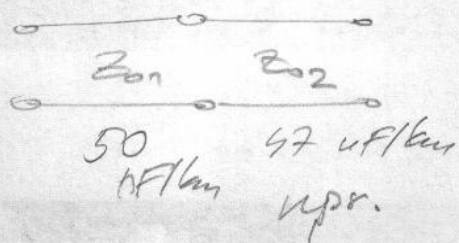 Z₀₁ Z₀₂
50 47 nF/km
nF/km
npr.